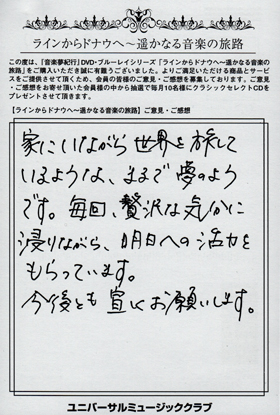 ラインからドナウへ~遥かなる音楽の旅路
この度は、「音楽夢紀行」DVD・ブルーレイシリーズ「ラインからドナウへ~遥かなる音楽の
旅路」をご購入いただき誠に有難うございました。よりご満足いただける商品とサービ
スをご提供させて頂くため、会員の皆様のご意見・ご感想を募集しております。ご意見
・ご感想をお寄せ頂いた会員様の中から抽選で毎月10名様にクラシックセレクトCDを
プレゼントさせて頂きます。
【ラインからドナウへ~遥かなる音楽の旅路】ご意見・ご感想
家にいながら世界を旅して
いるような、まるで夢のよう
です。毎回、贅沢な気分に
浸りながら、明日への活力を
もらっています。
今後とも宜しくお願いします。
ユニバーサルミュージッククラブ